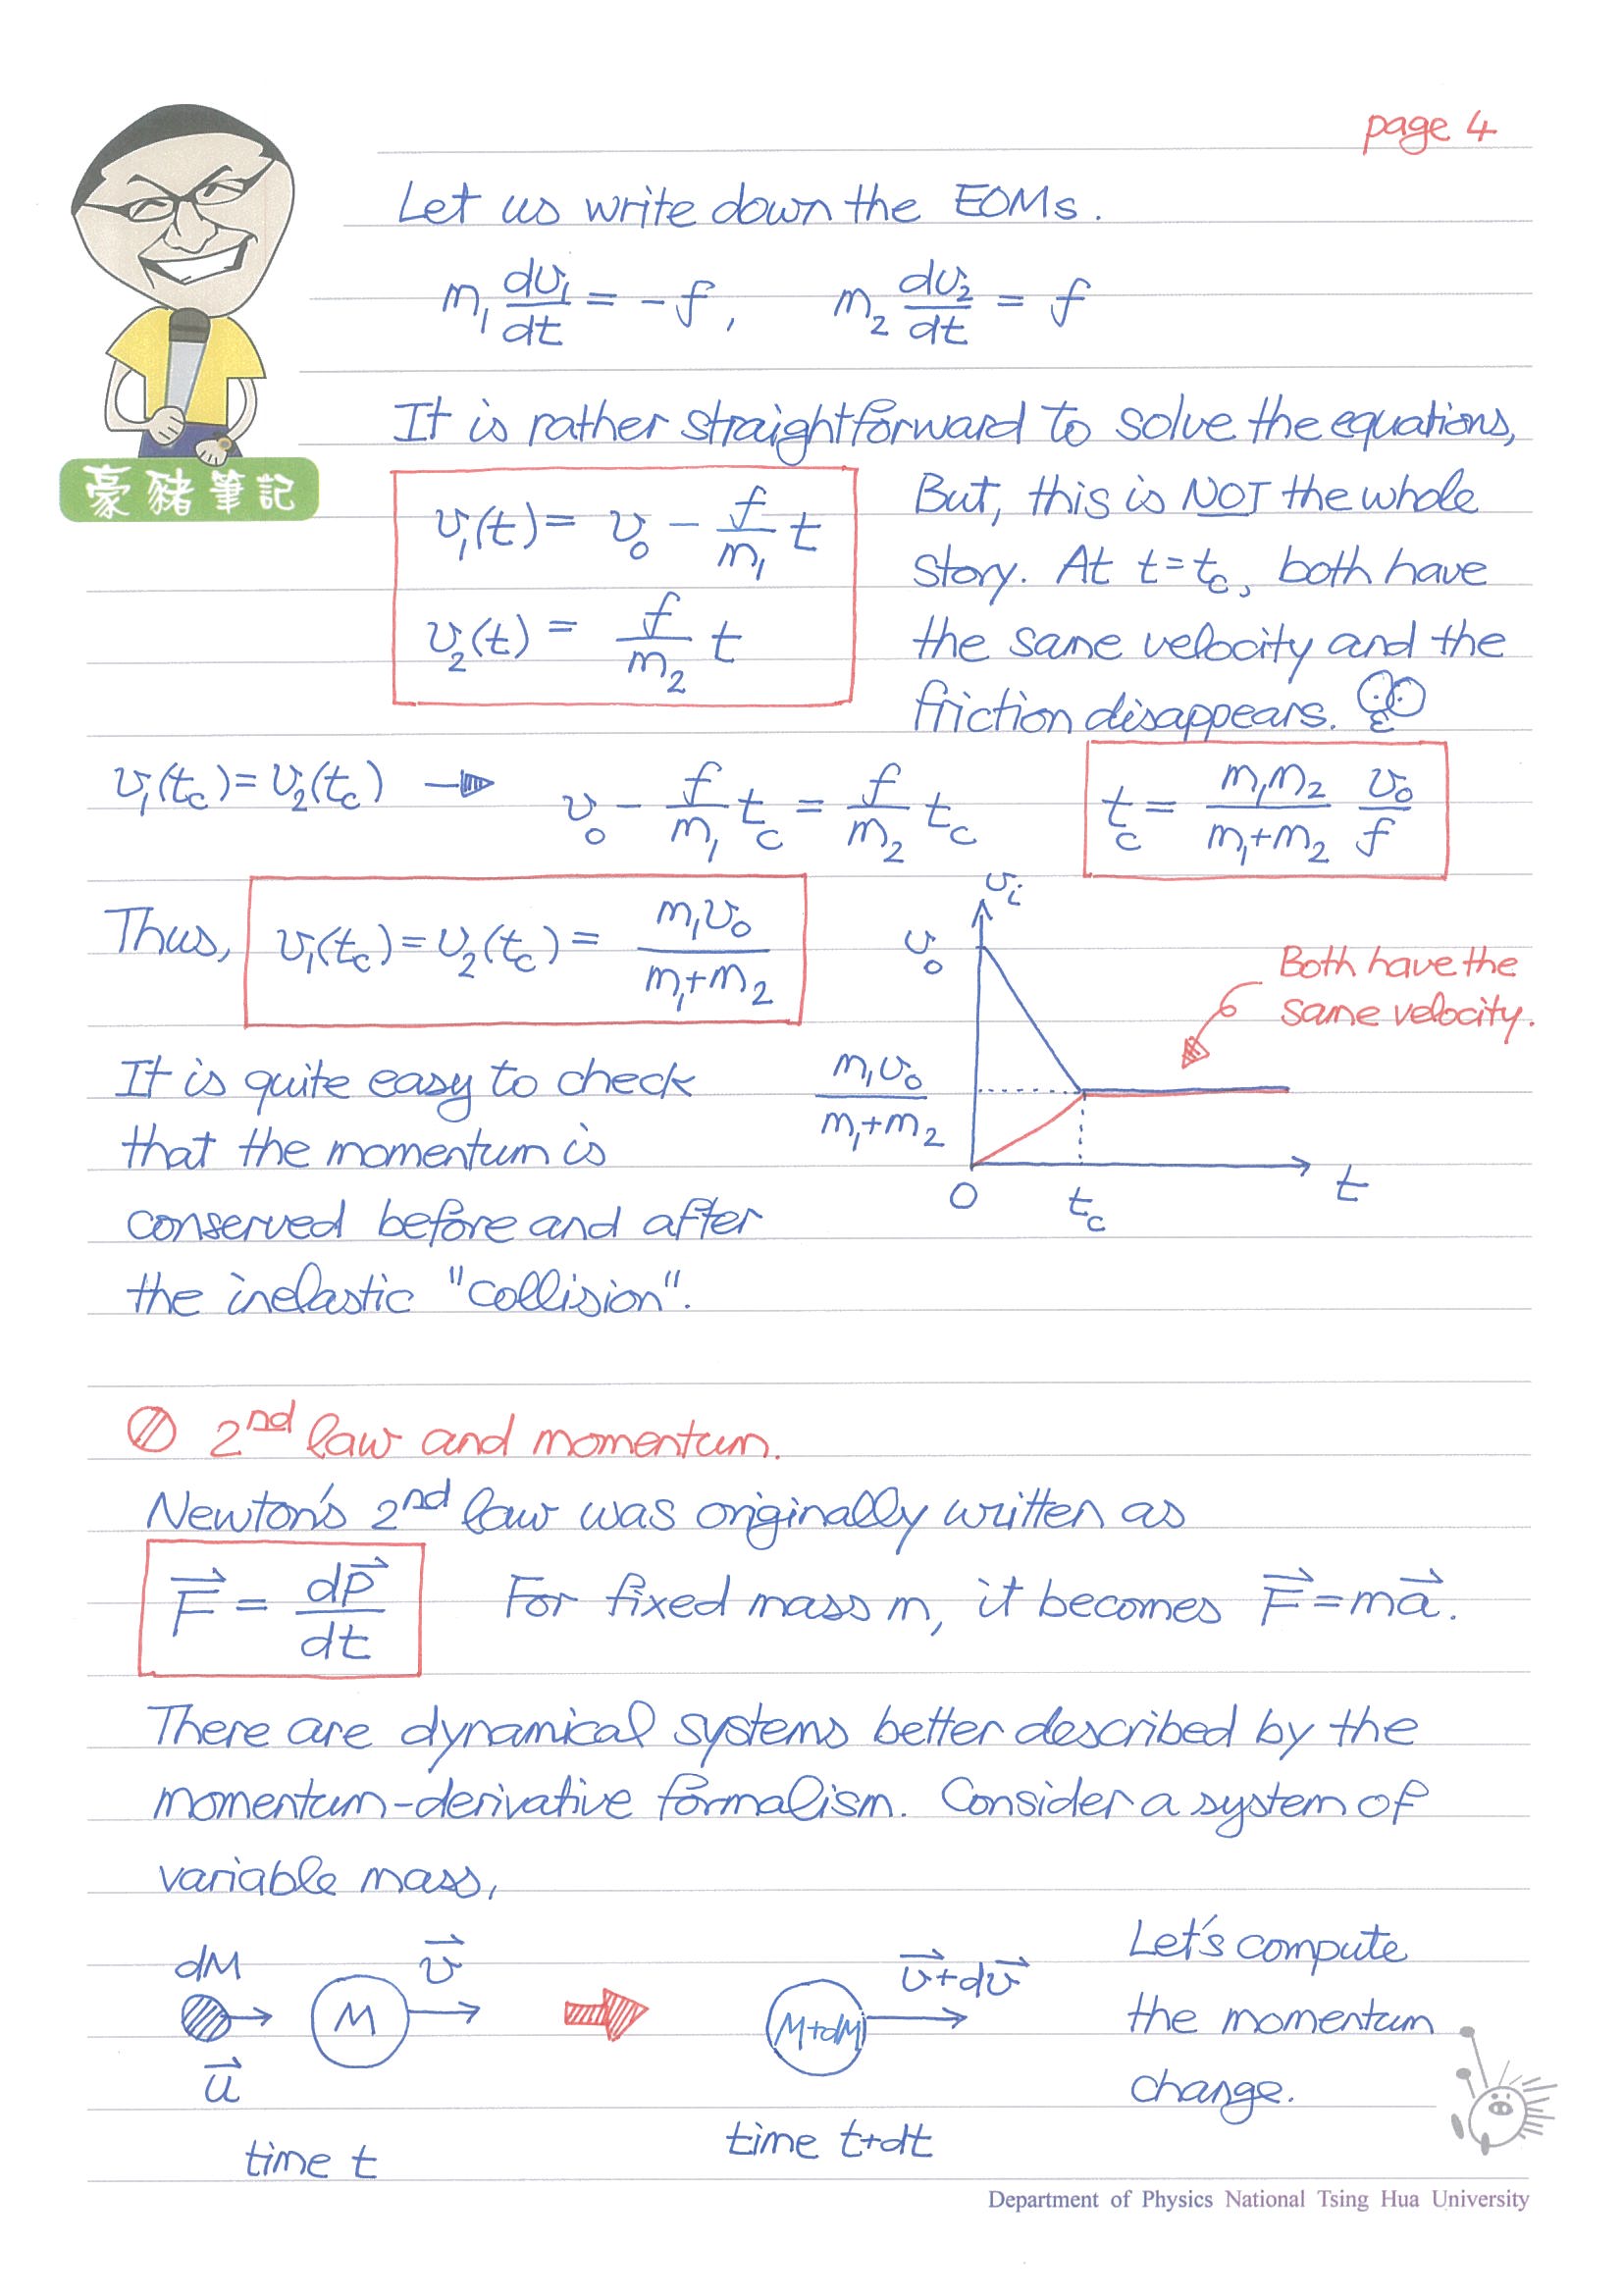 page 4
Let us write down the EOMs.
m₁ dv₁/dt = -f, m₂ dv₂/dt = f
It is rather straightforward to solve the equations,
豪豬筆記
v₁(t) = v₀ - f/m₁ t
v₂(t) = f/m₂ t
But, this is NOT the whole
story. At t=t_c, both have
the same velocity and the
friction disappears.
v₁(t_c) = v₂(t_c) → v₀ - f/m₁ t_c = f/m₂ t_c
t_c = m₁m₂/(m₁+m₂) v₀/f
Thus, v₁(t_c) = v₂(t_c) = m₁v₀/(m₁+m₂)
v_i
v₀
Both have the
same velocity.
m₁v₀/(m₁+m₂)
0
t_c
t
It is quite easy to check
that the momentum is
conserved before and after
the inelastic "collision".
2nd law and momentum.
Newton's 2nd law was originally written as
F⃗ = dP⃗/dt For fixed mass m, it becomes F⃗=ma⃗.
There are dynamical systems better described by the
momentum-derivative formalism. Consider a system of
variable mass,
dM
v⃗
M
u⃗
time t
v⃗+dv⃗
M+dM
time t+dt
Let's compute
the momentum
change.
Department of Physics National Tsing Hua University